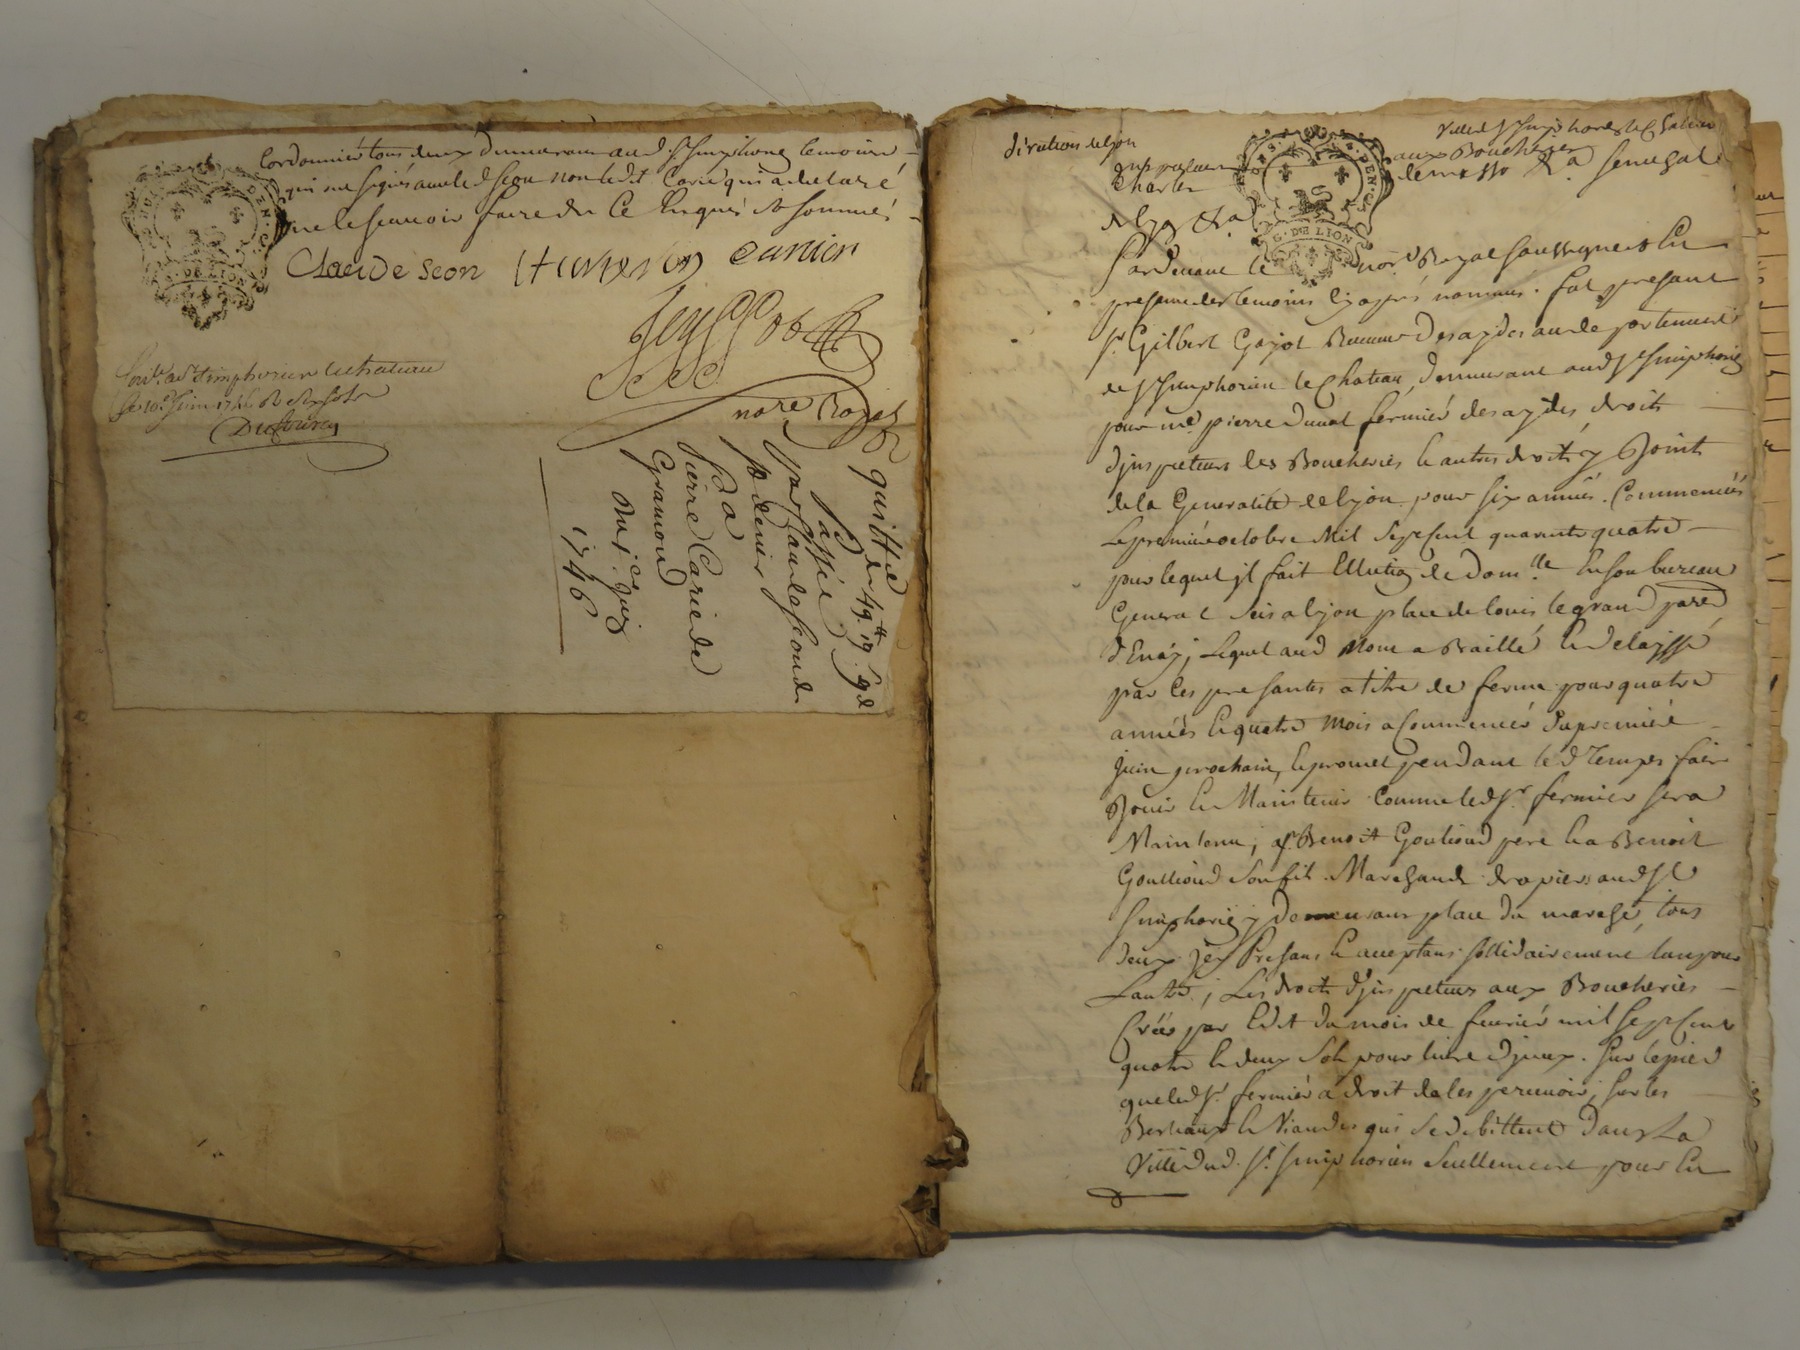 Cordonnier tous deux demeurans aud St Simphorien temoins
qui ont signés avec led Seon non ledit Carié qui a declaré
ne le scauoir faire de Ce Enquis et sommés
Claude Seon
notre Royal
Con.lé a St Simphorien le chateau
le 10e juin 1746
quittce
de 49tt 19s 9d
passée
par
a
Pierre Carié de
Gramond
Du juin
1746
direction de Lyon
Ville de St Simphorien le Chateau
aux Boucheries
Pardeuant le nore Royal soussigné et En
presence des temoins Cy apres nommés. fut present
Sr Gilbert Gayot Receueur des aydes au departement
de St Simphorien le Chateau, demeurant aud St Simphorien
pour Me pierre Duual fermier des aydes droits
d'jnspecteurs les Boucheries & autres droits y Joints
de la Generalité de Lyon, pour six années. Commencées
Le premier octobre Mil Sept Cent quarente quatre
pour lequel jl fait Election de domlle En son bureau
General Scis a Lyon place de Louis le grand paroi
d'Enay; Lequel aud Nom a Baillé & delaissé
par Ces presantes a titre de ferme pour quatre
années & quatre mois a Commencer du premier
Juin prochain, & promet pendant led Temps faire
Jouir & Maintenir Comme led Sr fermier sera
Maintenu; a Sr Benoit Goutioud pere & a Benoit
Goutlioud son fils Marchands drapiers aud St
Simphorien y Demeurans place du marché, tous
deux jcy Presans & acceptans solidairement l'un pour
L'autre; Les droits d'jnspecteurs aux Boucheries
Créés par Edit du mois de feurier mil Sept Cent
quatre & deux Sols pour liure d'jceux. Sur le pied
que led Sr fermier a droit de les perceuoir, sur les
Bestiaux & Viandes qui se debittent Dans La
Ville dud. St Simphorien Seullement pour En